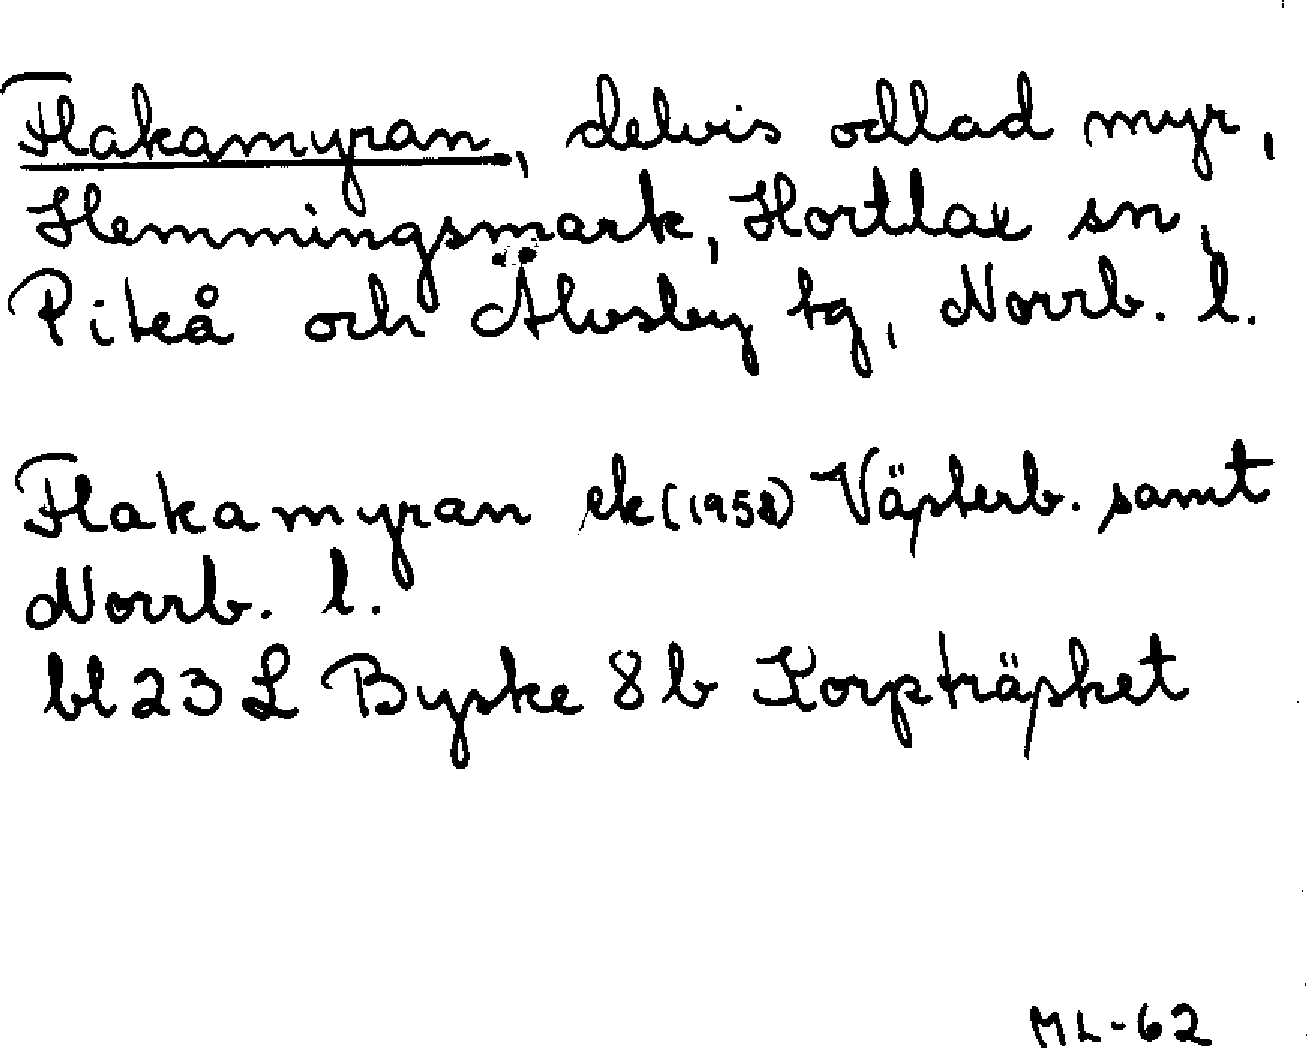 Flakamyran, delvis odlad myr,
Hemmingsmark, Hortlax sn,
Piteå och Älvsby tg, Norrb. l.
Flakamyran ek (1958) Västerb. samt
Norrb. l.
bl 23 L Byske 8 b Korpträsket
ML-62